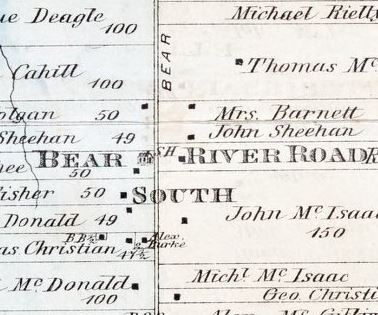 ue Deagle
100
Michael Rielly
BEAR
Cahill
100
Thomas Mc
50
Mrs. Barnett
Sheehan 49
John Sheehan
BEAR
SH
RIVER ROAD
50
isher 50
SOUTH
Donald 49
John Mc Isaac
150
B.B.
as Christian
47½
Alex.
Burke
Mc Donald
100
Michl. Mc Isaac
Geo. Christi